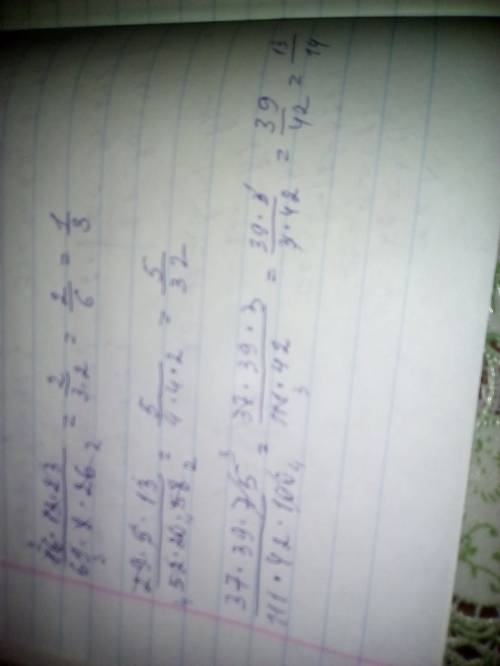 69 · 8 · 26 = 2/3·2 = 2/6 = 1/3
29·5·13/52·20·58 = 5/4·4·2 = 5/32
37·39·75/111·42·100 = 37·39·3/111·42 = 39·3/3·42 = 39/42 = 13/14